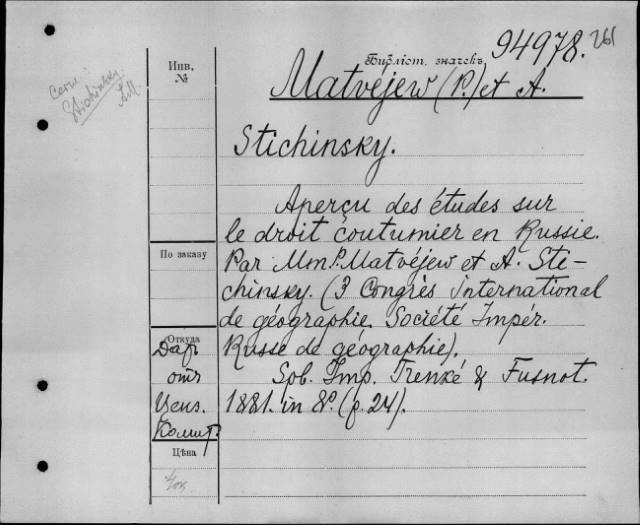 94978. 261
Инв.
№
Бібліот. значекъ
Matvéjew (P.) et A.
Stichinsky.
Aperçu des études sur
le droit coutumier en Russie.
По заказу
Par Mm. P. Matvéjew et A. Sti-
chinsky. (3 Congrès international
de géographie. Société Impér.
Russe de géographie).
Откуда
Даръ
отъ
Ценз.
Комит.
Spb. Imp. Trenké & Fusnot.
1881. in 8º. (p. 24).
Цѣна